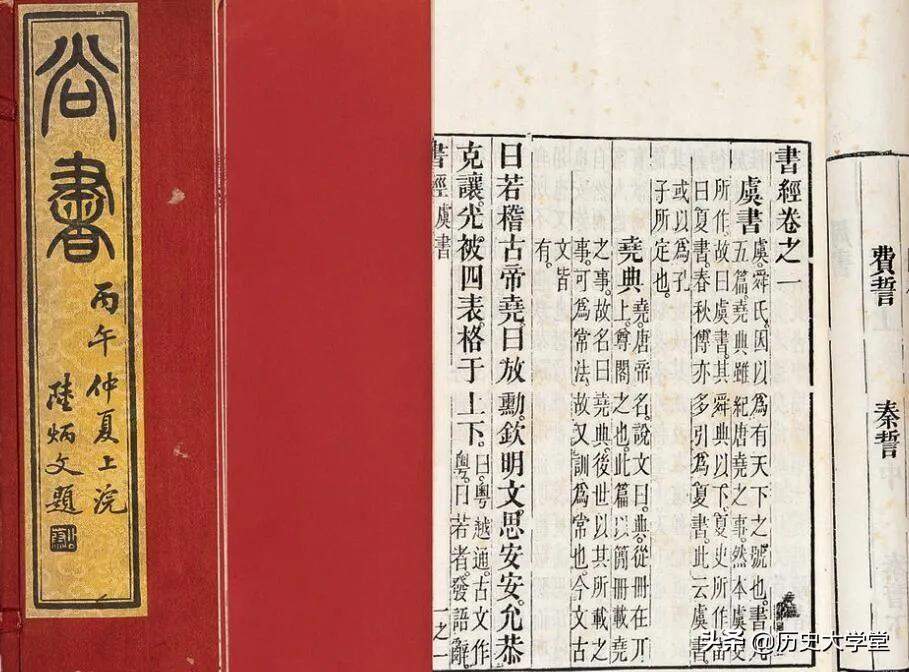 尚書
丙午仲夏上浣
陸炳文題
費誓
秦誓
書經卷之一
虞書
虞。舜氏。因以爲有天下之號也。書凡
五篇。堯典雖紀唐堯之事。然本虞史
所作。故曰虞書。其舜典以下。夏史所作。當
曰夏書。春秋傳亦多引爲夏書。此云虞書
或以爲孔
子所定也。
堯典
堯。唐帝名。說文曰。典。從冊在丌
上。尊閣之也。此篇以簡冊載堯
之事。故名曰堯典。後世以其所載之
事。可爲常法。故又訓爲常也。今文古
文皆
有。
曰若稽古帝堯。曰放勳。欽明文思安安。允恭
克讓。光被四表。格于上下。
曰粤越通。古文作
粤。曰若者。發語辭
書經 虞書 一之一
头条 @历史大学堂